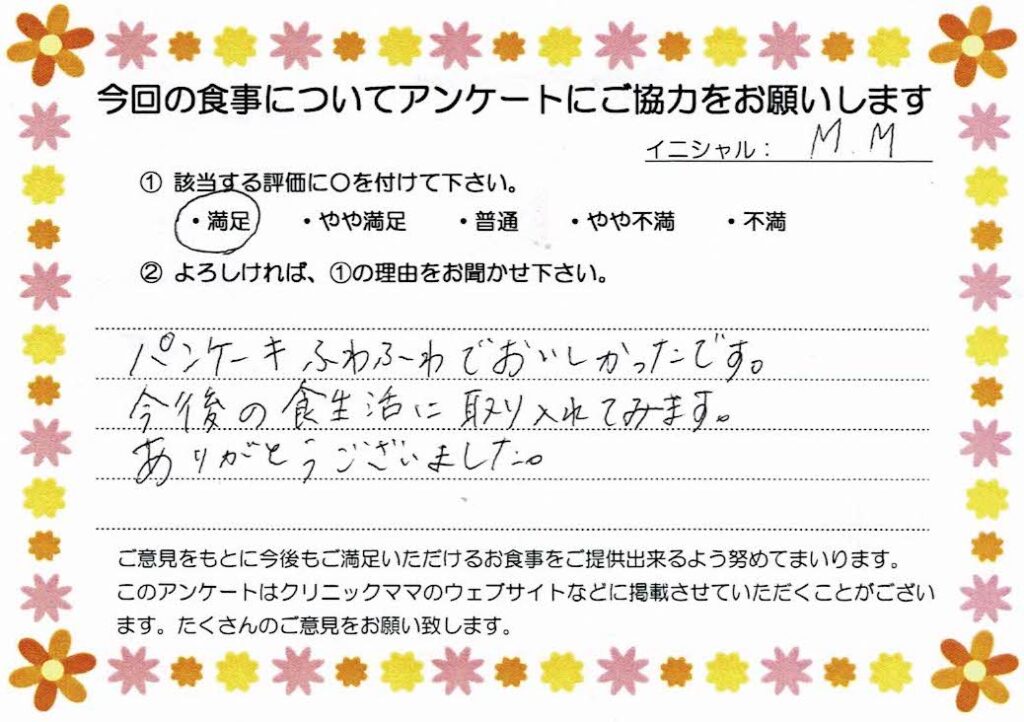 今回の食事についてアンケートにご協力をお願いします
イニシャル： M.M
① 該当する評価に〇を付けて下さい。
・満足 ・やや満足 ・普通 ・やや不満 ・不満
② よろしければ、①の理由をお聞かせ下さい。
パンケーキふわふわでおいしかったです。
今後の食生活に取り入れてみます。
ありがとうございました。
ご意見をもとに今後もご満足いただけるお食事をご提供出来るよう努めてまいります。
このアンケートはクリニックママのウェブサイトなどに掲載させていただくことがござい
ます。たくさんのご意見をお願い致します。